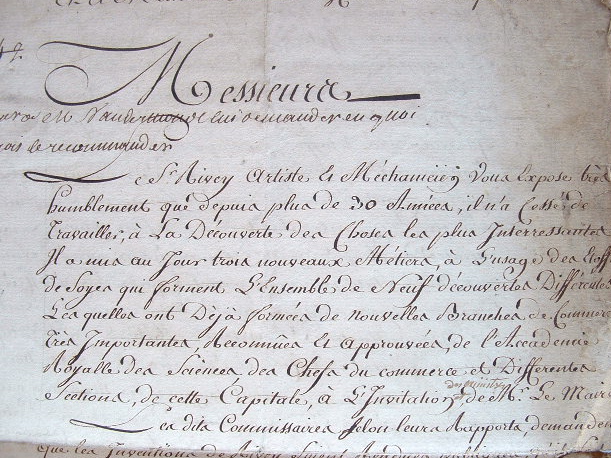 Messieurs
M. Vandermonde lui demander en quoi
je recommander
Le Sr. Rivey Artiste Et Méchanicien Vous Expose très
humblement que depuis plus de 30 Années, il n'a Cessé de
Travailler, à La Découverte des Choses les plus Interressantes
Il a mis au Jour trois nouveaux Métiers, à L'usage des Etoff
de Soyes qui forment L'Ensemble de Neuf découvertes Différentes
Lesquelles ont Dèjà formées de nouvelles Branches de Commerc
Très Importantes, Reconnûes Et approuvées, de l'Accademie
Royalle des Sciénces des Chefs du commerce et Differentes
Sections, de cette Capitale, à L'Invitation, de M. Le Mair
Les dits Commissaires selon leurs Rapports, demanden
que les Inventions de Rivey Soient